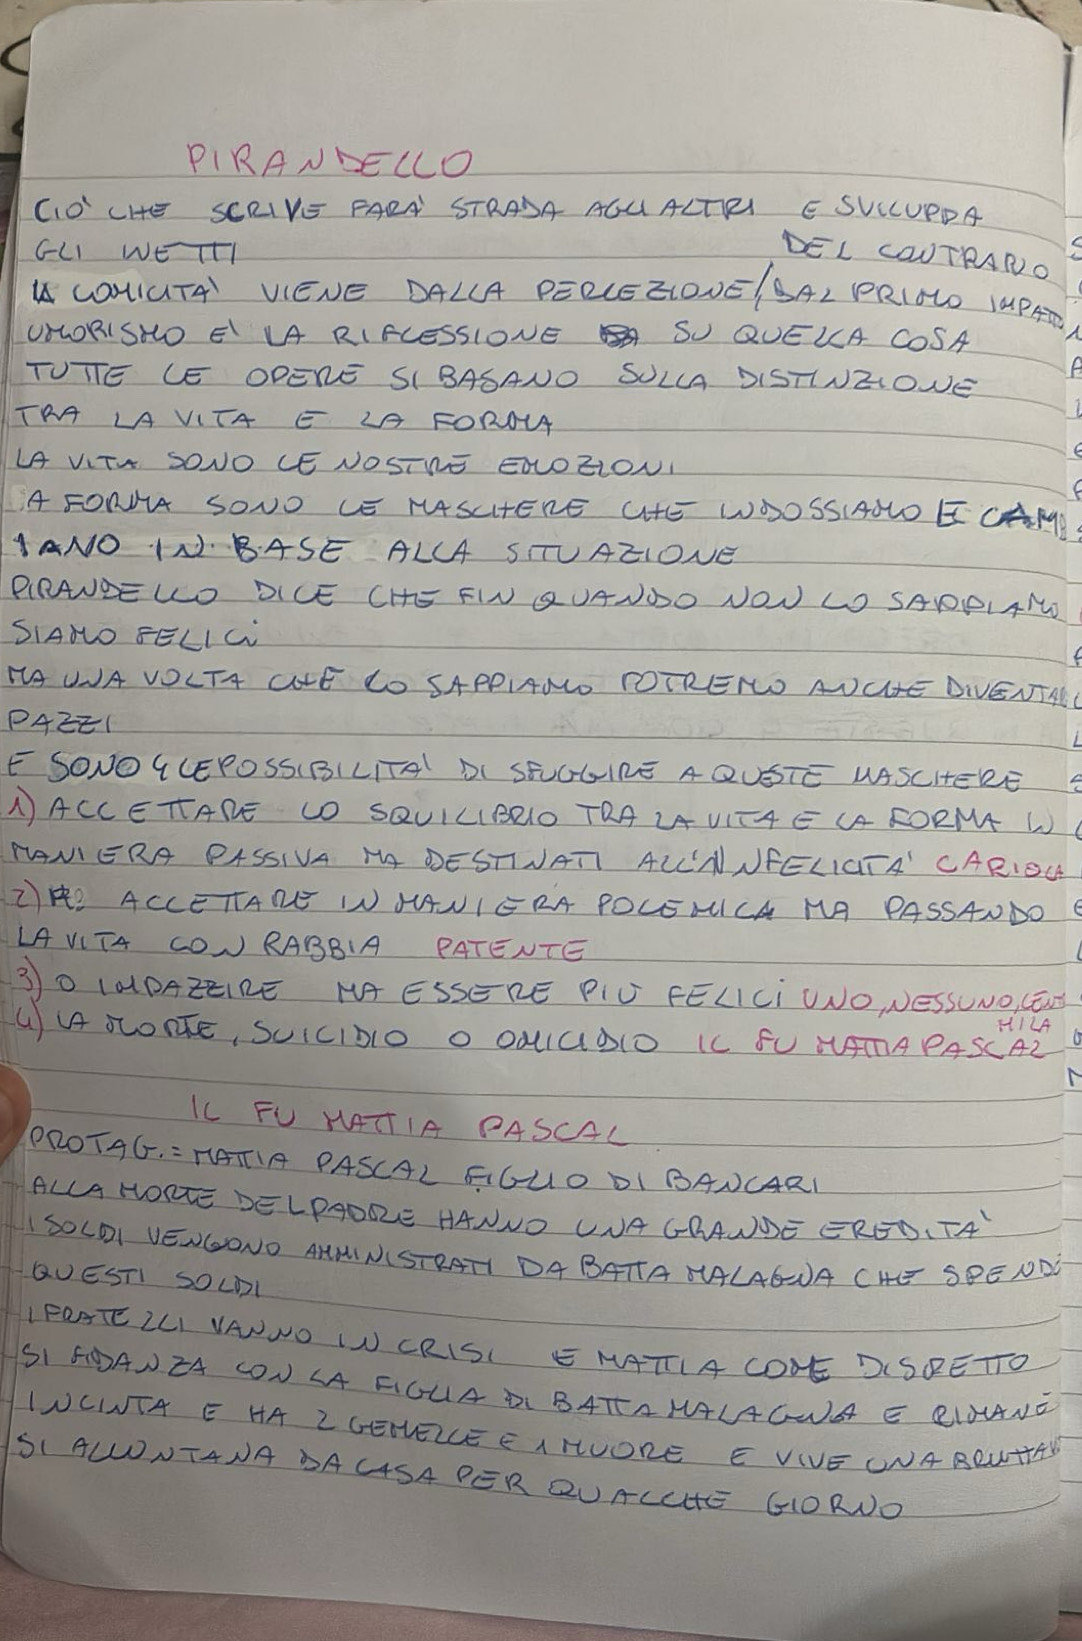 PIRANDELLO
CIO' CHE SCRIVE FARA' STRADA AGLI ALTRI E SVILUPPA
GLI INETTI
DEL CONTRARIO
LA COMICITA' VIENE DALLA PERCEZIONE/DAL PRIMO IMPATTO
UMORISMO E' LA RIFLESSIONE SU QUELLA COSA
TUTTE LE OPERE SI BASANO SULLA DISTINZIONE
TRA LA VITA E LA FORMA
LA VITA SONO LE NOSTRE EMOZIONI
A FORMA SONO LE MASCHERE CHE INDOSSIAMO E CAMB
IANO IN BASE ALLA SITUAZIONE
PIRANDELLO DICE CHE FIN QUANDO NON LO SAPPIAMO
SIAMO FELICI
MA UNA VOLTA CHE LO SAPPIAMO POTREMO ANCHE DIVENTAR
PAZZI
E SONO 4 LE POSSIBILITA' DI SFUGGIRE A QUESTE MASCHERE
1) ACCETTARE LO SQUILIBRIO TRA LA VITA E LA FORMA IN
MANIERA PASSIVA MA DESTINATI ALL'INFELICITA' CARIOLA
2) ACCETTARE IN MANIERA POLEMICA MA PASSANDO
LA VITA CON RABBIA PATENTE
3) O IMPAZZIRE MA ESSERE PIU FELICI UNO, NESSUNO, CENTO
MILA
4) LA MORTE, SUICIDIO O OMICIDIO IL FU MATTIA PASCAL
IL FU MATTIA PASCAL
PROTAG. = MATTIA PASCAL FIGLIO DI BANCARI
ALLA MORTE DEL PADRE HANNO UNA GRANDE EREDITA'
I SOLDI VENGONO AMMINISTRATI DA BATTA MALAGNA CHE SPENDE
QUESTI SOLDI
I FRATELLI VANNO IN CRISI E MATTIA COME DISPETTO
SI FIDANZA CON LA FIGLIA DI BATTA MALAGNA E RIMANE
INCINTA E HA 2 GEMELLE E 1 MUORE E VIVE UNA BRUTTA
SI ALLONTANA DA CASA PER QUALCHE GIORNO